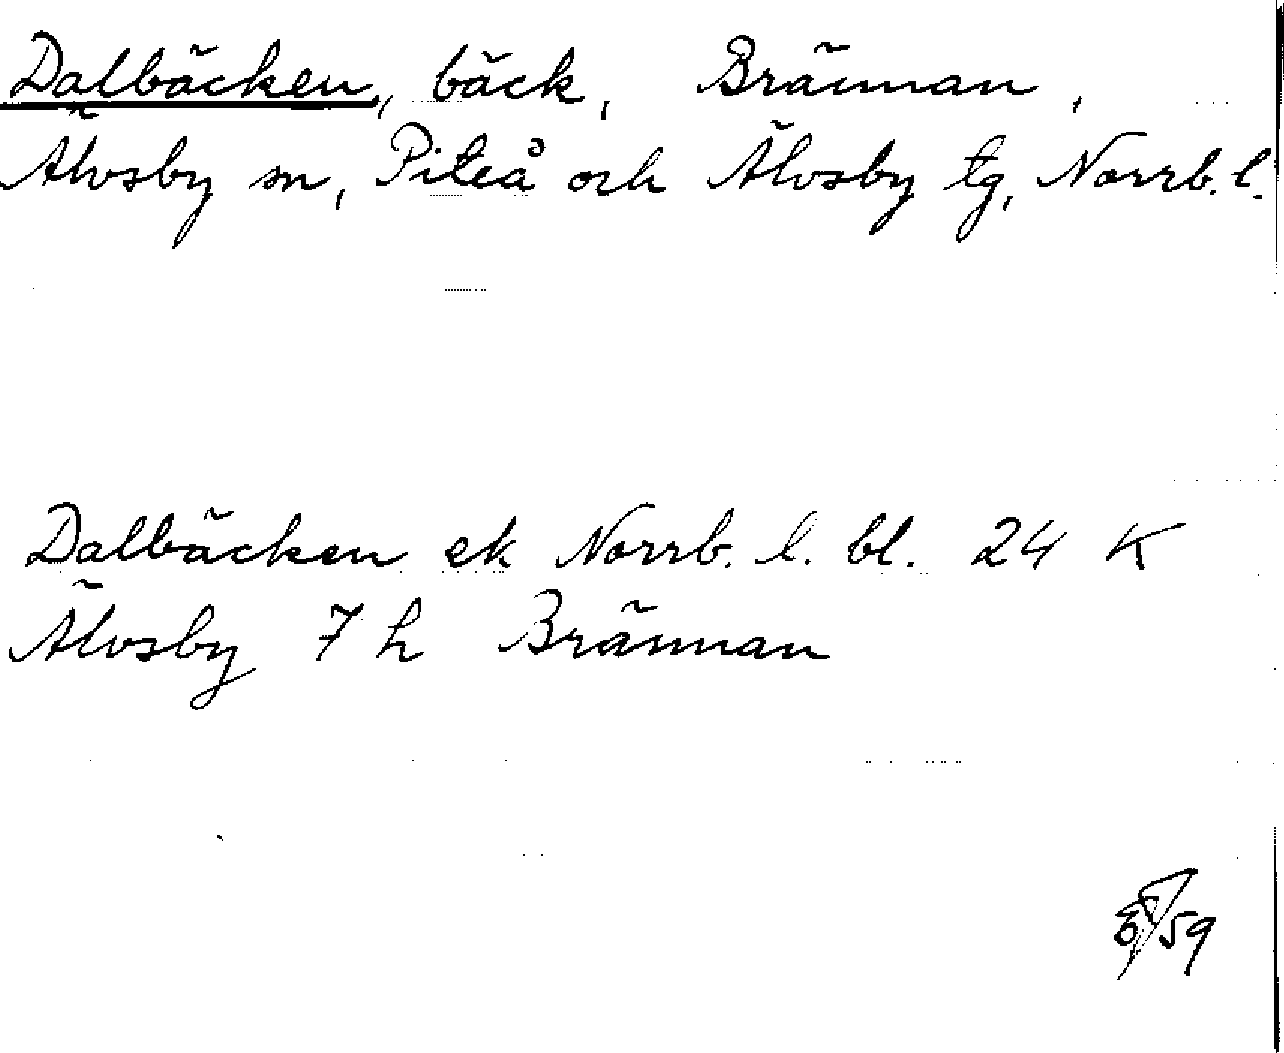 Dalbäcken, bäck, Brännan,
Älvsby sn, Piteå och Älvsby tg, Norrb. l.
Dalbäcken ek Norrb. l. bl. 24 K
Älvsby 7 h Brännan
59